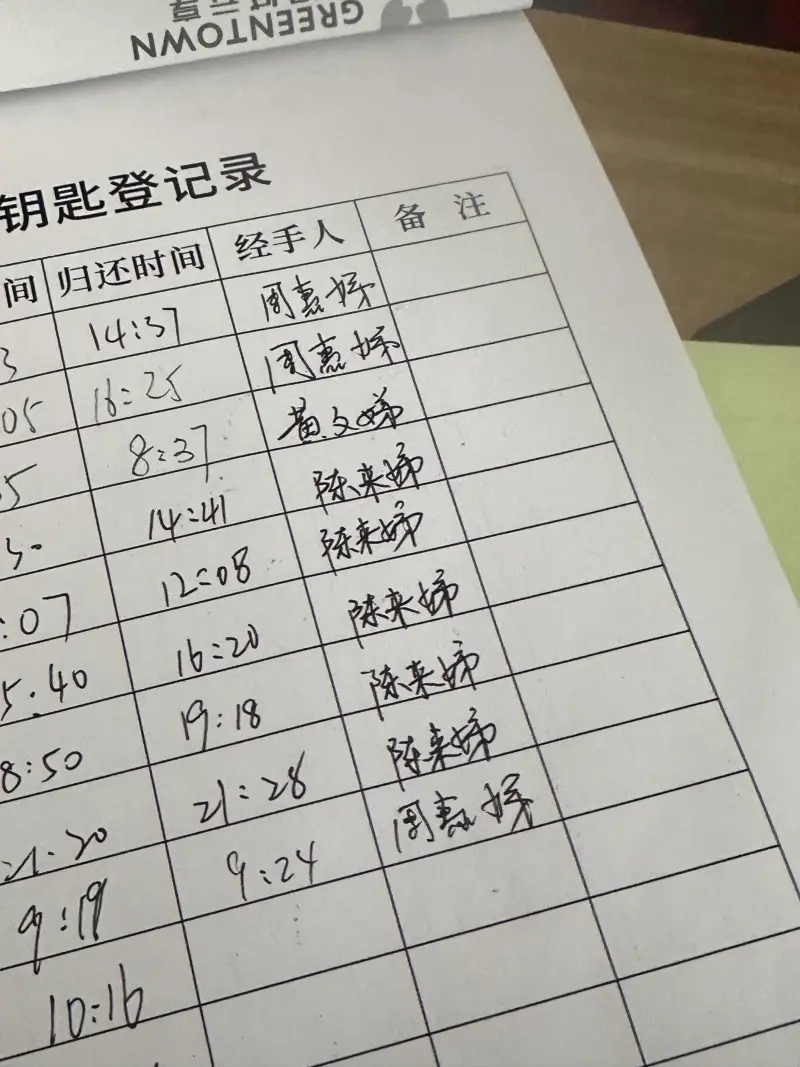 GREENTOWN
钥匙登记录
间 归还时间 经手人 备 注
3 14:37 周惠娣
05 16:25 周惠娣
5 8:37 黄文娣
30 14:41 陈来娣
:07 12:08 陈来娣
5:40 16:20 陈来娣
8:50 19:18 陈来娣
21:20 21:28 陈来娣
9:19 9:24 周惠娣
10:16